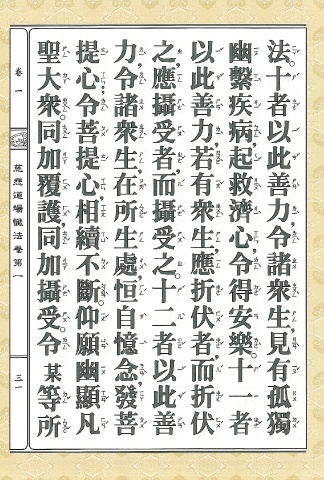 法。十者以此善力,令諸衆生,見有孤獨
幽繫疾病,起救濟心,令得安樂。十一者
以此善力,若有衆生,應折伏者,而折伏
之,應攝受者,而攝受之。十二者以此善
力,令諸衆生,在所生處,恒自憶念,發菩
提心,令菩提心,相續不斷。仰願幽顯凡
聖大衆。同加覆護,同加攝受。令 某等所
卷一
慈悲道場懺法卷第一
三一